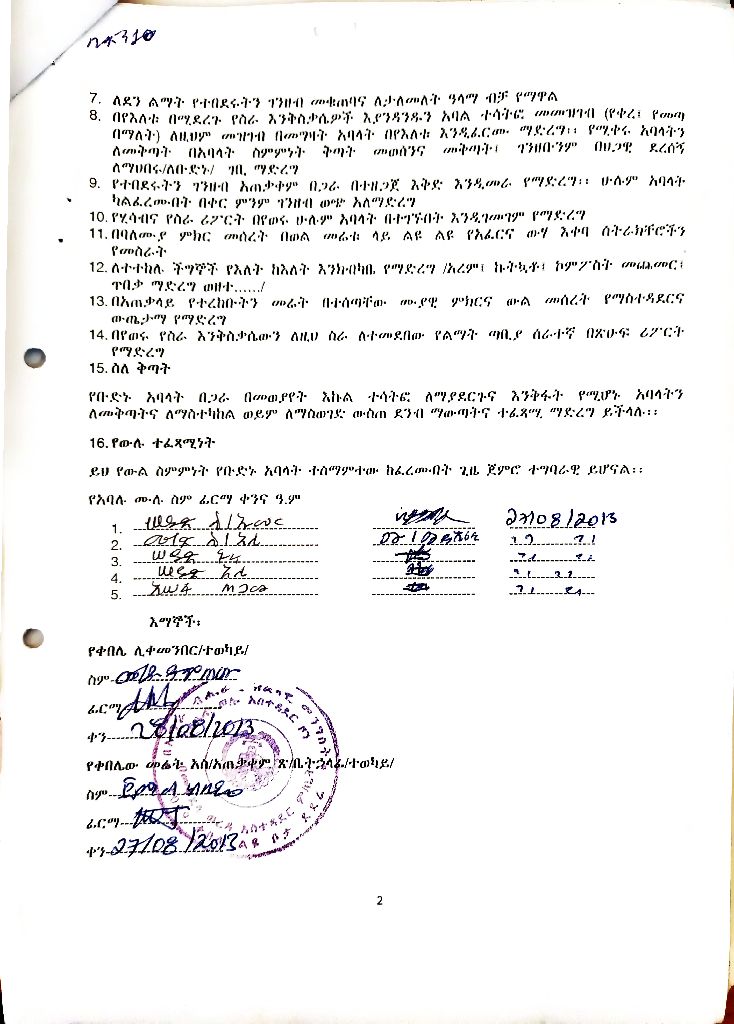 7. ለደን ልማት የተበደሩትን ገንዘብ መቁጠባና ለታለመለት ዓላማ ብቻ የማዋል
8. በየእለቱ በሚደረጉ የስራ እንቅስቃሴዎች እያንዳንዱን አባል ተሳትፎ መመዝገብ (የቀረ፣ የመጣ
በማለት) ለዚህም መዝገብ በመግዛት አባላት በየእለቱ እንዲፈርሙ ማድረግ፡፡ የሚቀሩ አባላትን
ለመቅጣት በአባላት ስምምነት ቅጣት መወሰንና መቅጣት፣ ገንዘቡንም በህጋዊ ደረሰኝ
ለማህበሩ/ለቡድኑ/ ገቢ ማድረግ
9. የተበደሩትን ገንዘብ አጠቃቀም በጋራ በተዘጋጀ እቅድ እንዲመራ የማድረግ፡፡ ሁሉም አባላት
ካልፈረሙበት በቀር ምንም ገንዘብ ወጭ አለማድረግ
10. የሂሳብና የስራ ሪፖርት በየወሩ ሁሉም አባላት በተገኙበት እንዲገመገም የማድረግ
11. በባለሙያ ምክር መሰረት በወል መሬቱ ላይ ልዩ ልዩ የአፈርና ውሃ እቀባ ስትራክቸሮችን
የመስራት
12. ለተተከሉ ችግኞች የእለት ከእለት እንክብካቤ የማድረግ /አረም፣ ኩትኳቶ፣ ኮምፖስት መጨመር፣
ጥበቃ ማድረግ ወዘተ....../
13. በአጠቃላይ የተረከቡትን መሬት በተሰጣቸው ሙያዊ ምክርና ውል መሰረት የማስተዳደርና
ውጤታማ የማድረግ
14. በየወሩ የስራ እንቅስቃሴውን ለዚህ ስራ ለተመደበው የልማት ጣቢያ ሰራተኛ በጽሁፍ ሪፖርት
የማድረግ
15. ስለ ቅጣት
የቡድኑ አባላት በጋራ በመወያየት እኩል ተሳትፎ ለማያደርጉና እንቅፋት የሚሆኑ አባላትን
ለመቅጣትና ለማስተካከል ወይም ለማስወገድ ውስጠ ደንብ ማውጣትና ተፈጻሚ ማድረግ ይችላሉ፡፡
16. የውሉ ተፈጻሚነት
ይህ የውል ስምምነት የቡድኑ አባላት ተስማምተው ከፈረሙበት ጊዜ ጀምሮ ተግባራዊ ይሆናል፡፡
የአባሉ ሙሉ ስም ፊርማ ቀንና ዓ.ም
1. 27/08/2013
2.
3.
4.
5.
እማኞች፡
የቀበሌ ሊቀመንበር/ተወካይ/
ስም
ፊርማ
ቀን 28/08/2013
የቀበሌው መሬት አስ/አጠቃቀም ጽ/ቤት ኃላፊ/ተወካይ/
ስም
ፊርማ
ቀን 27/08/2013
2